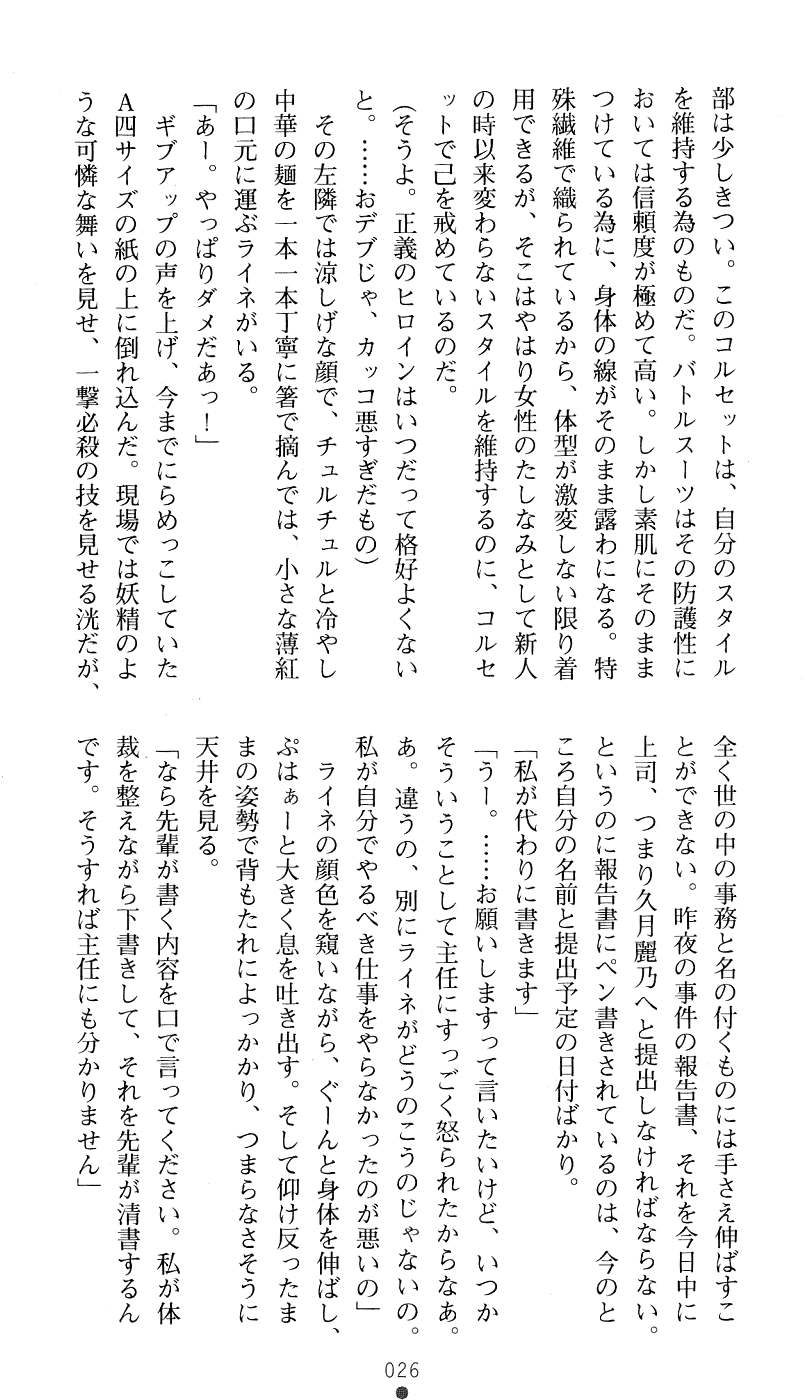 部は少しきつい。このコルセットは、自分のスタイル
を維持する為のものだ。バトルスーツはその防護性に
おいては信頼度が極めて高い。しかし素肌にそのまま
つけている為に、身体の線がそのまま露わになる。特
殊繊維で織られているから、体型が激変しない限り着
用できるが、そこはやはり女性のたしなみとして新人
の時以来変わらないスタイルを維持するのに、コルセ
ットで己を戒めているのだ。
(そうよ。正義のヒロインはいつだって格好よくない
と。……おデブじゃ、カッコ悪すぎだもの)
その左隣では涼しげな顔で、チュルチュルと冷やし
中華の麺を一本一本丁寧に箸で摘んでは、小さな薄紅
の口元に運ぶライネがいる。
「あー。やっぱりダメだあっ!」
ギブアップの声を上げ、今までにらめっこしていた
A四サイズの紙の上に倒れ込んだ。現場では妖精のよ
うな可憐な舞いを見せ、一撃必殺の技を見せる洸だが、
全く世の中の事務と名の付くものには手さえ伸ばすこ
とができない。昨夜の事件の報告書、それを今日中に
上司、つまり久月麗乃へと提出しなければならない。
というのに報告書にペン書きされているのは、今のと
ころ自分の名前と提出予定の日付ばかり。
「私が代わりに書きます」
「うー。……お願いしますって言いたいけど、いつか
そういうことして主任にすっごく怒られたからなぁ。
あ。違うの、別にライネがどうのこうのじゃないの。
私が自分でやるべき仕事をやらなかったのが悪いの」
ライネの顔色を窺いながら、ぐーんと身体を伸ばし、
ぷはぁーと大きく息を吐き出す。そして仰け反ったま
まの姿勢で背もたれによっかかり、つまらなさそうに
天井を見る。
「なら先輩が書く内容を口で言ってください。私が体
裁を整えながら下書きして、それを先輩が清書するん
です。そうすれば主任にも分かりません」
026